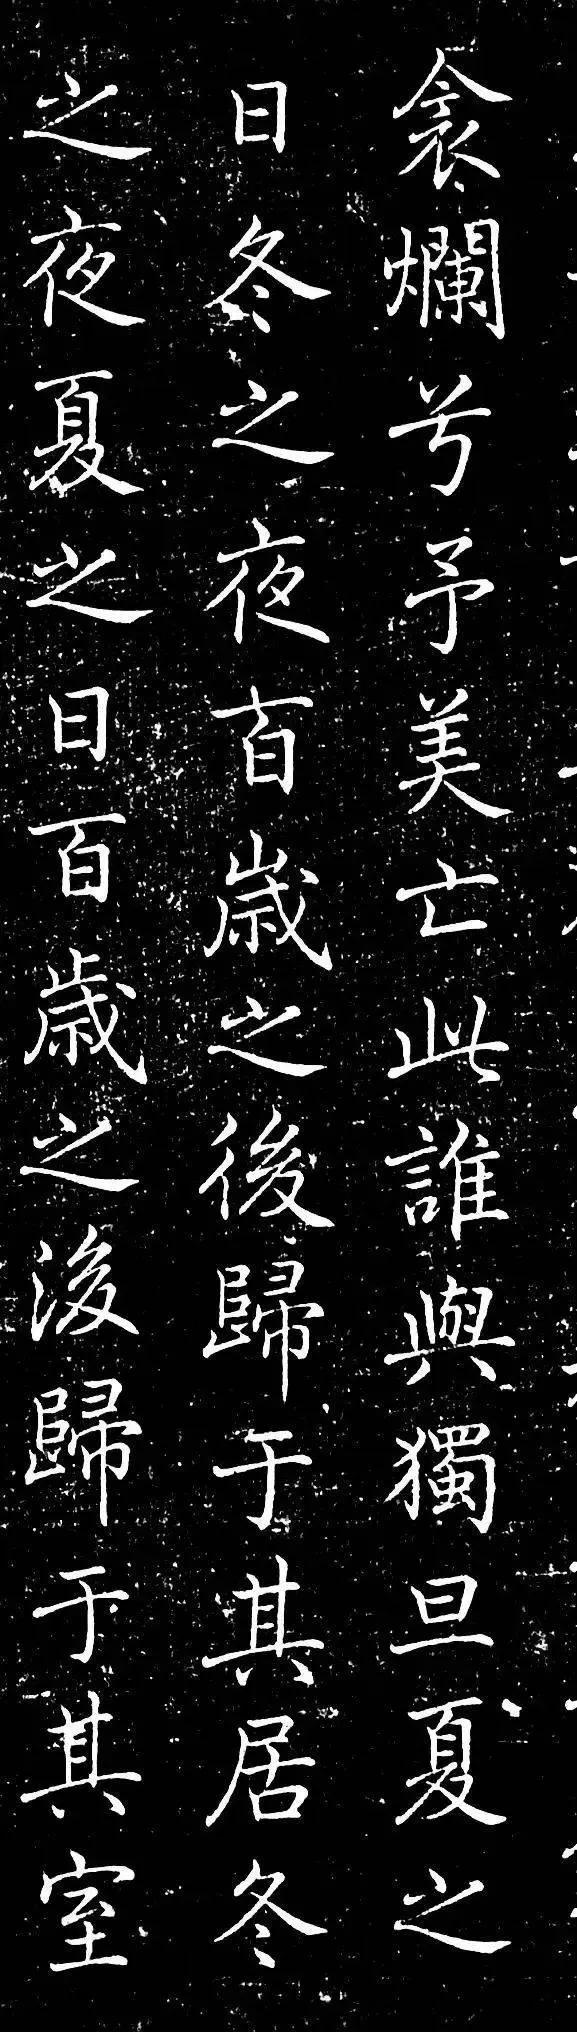 衾爛兮予美亡此誰與獨旦夏之
日冬之夜百嵗之後歸于其居冬
之夜夏之日百歳之後歸于其室